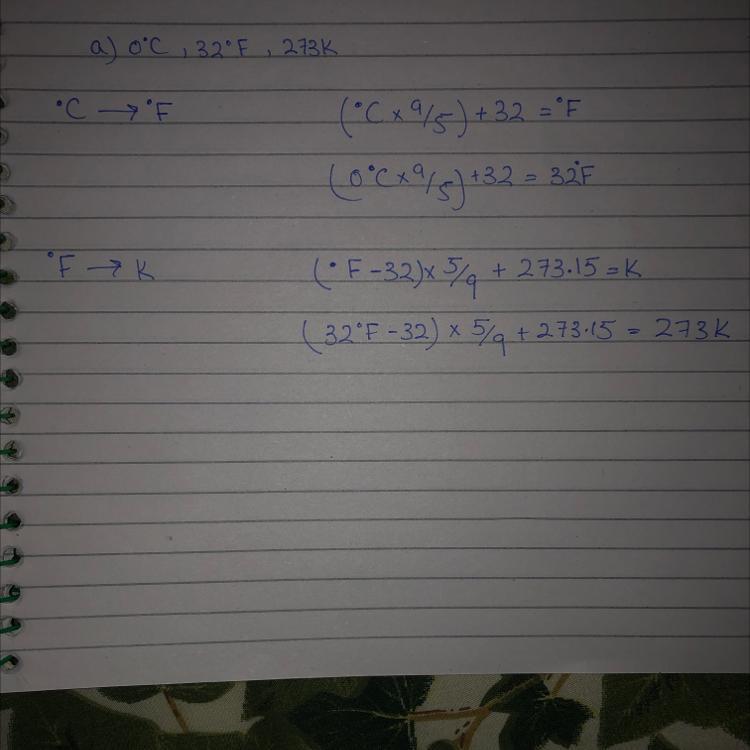 a) 0°C , 32°F , 273K
°C → °F (°C x 9/5) + 32 = °F
(0°C x 9/5) + 32 = 32°F
°F → K (°F - 32) x 5/9 + 273.15 = K
(32°F - 32) x 5/9 + 273.15 = 273K